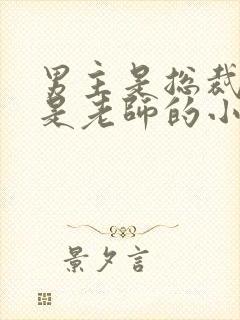 男主是总裁
是老师的小
景夕言